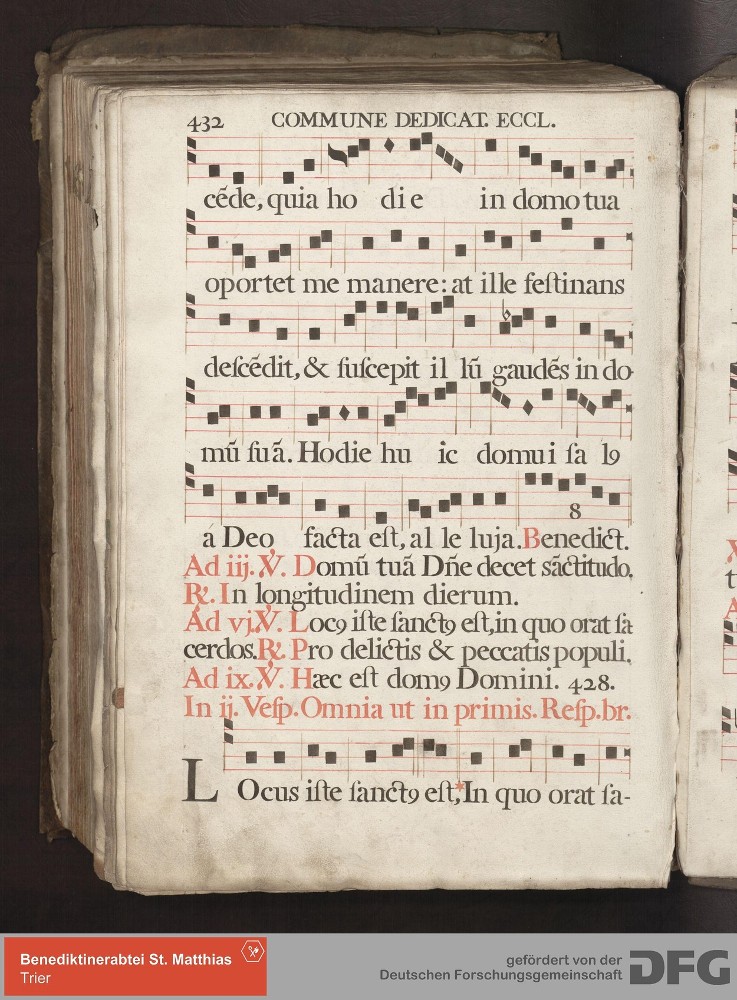 432 COMMUNE DEDICAT. ECCL.
cēde, quia ho die in domo tua
oportet me manere: at ille feſtinans
deſcēdit, & ſuſcepit il lū gaudēs in do-
mū ſuā. Hodie hu ic domui ſa lꝰ
8
á Deo facta eſt, al le luja. Benedict.
Ad iij. ℣. Domū tuā Dñe decet sāctitudo.
℟. In longitudinem dierum.
Ad vj. ℣. Locꝰ iſte ſanctꝰ eſt, in quo orat ſa
cerdos. ℟. Pro delictis & peccatis populi.
Ad ix. ℣. Hæc eſt domꝰ Domini. 428.
In ij. Veſp. Omnia ut in primis. Reſp. br.
LOcus iſte ſanctꝰ eſt,* In quo orat ſa-
Benediktinerabtei St. Matthias
Trier
gefördert von der
Deutschen Forschungsgemeinschaft
DFG